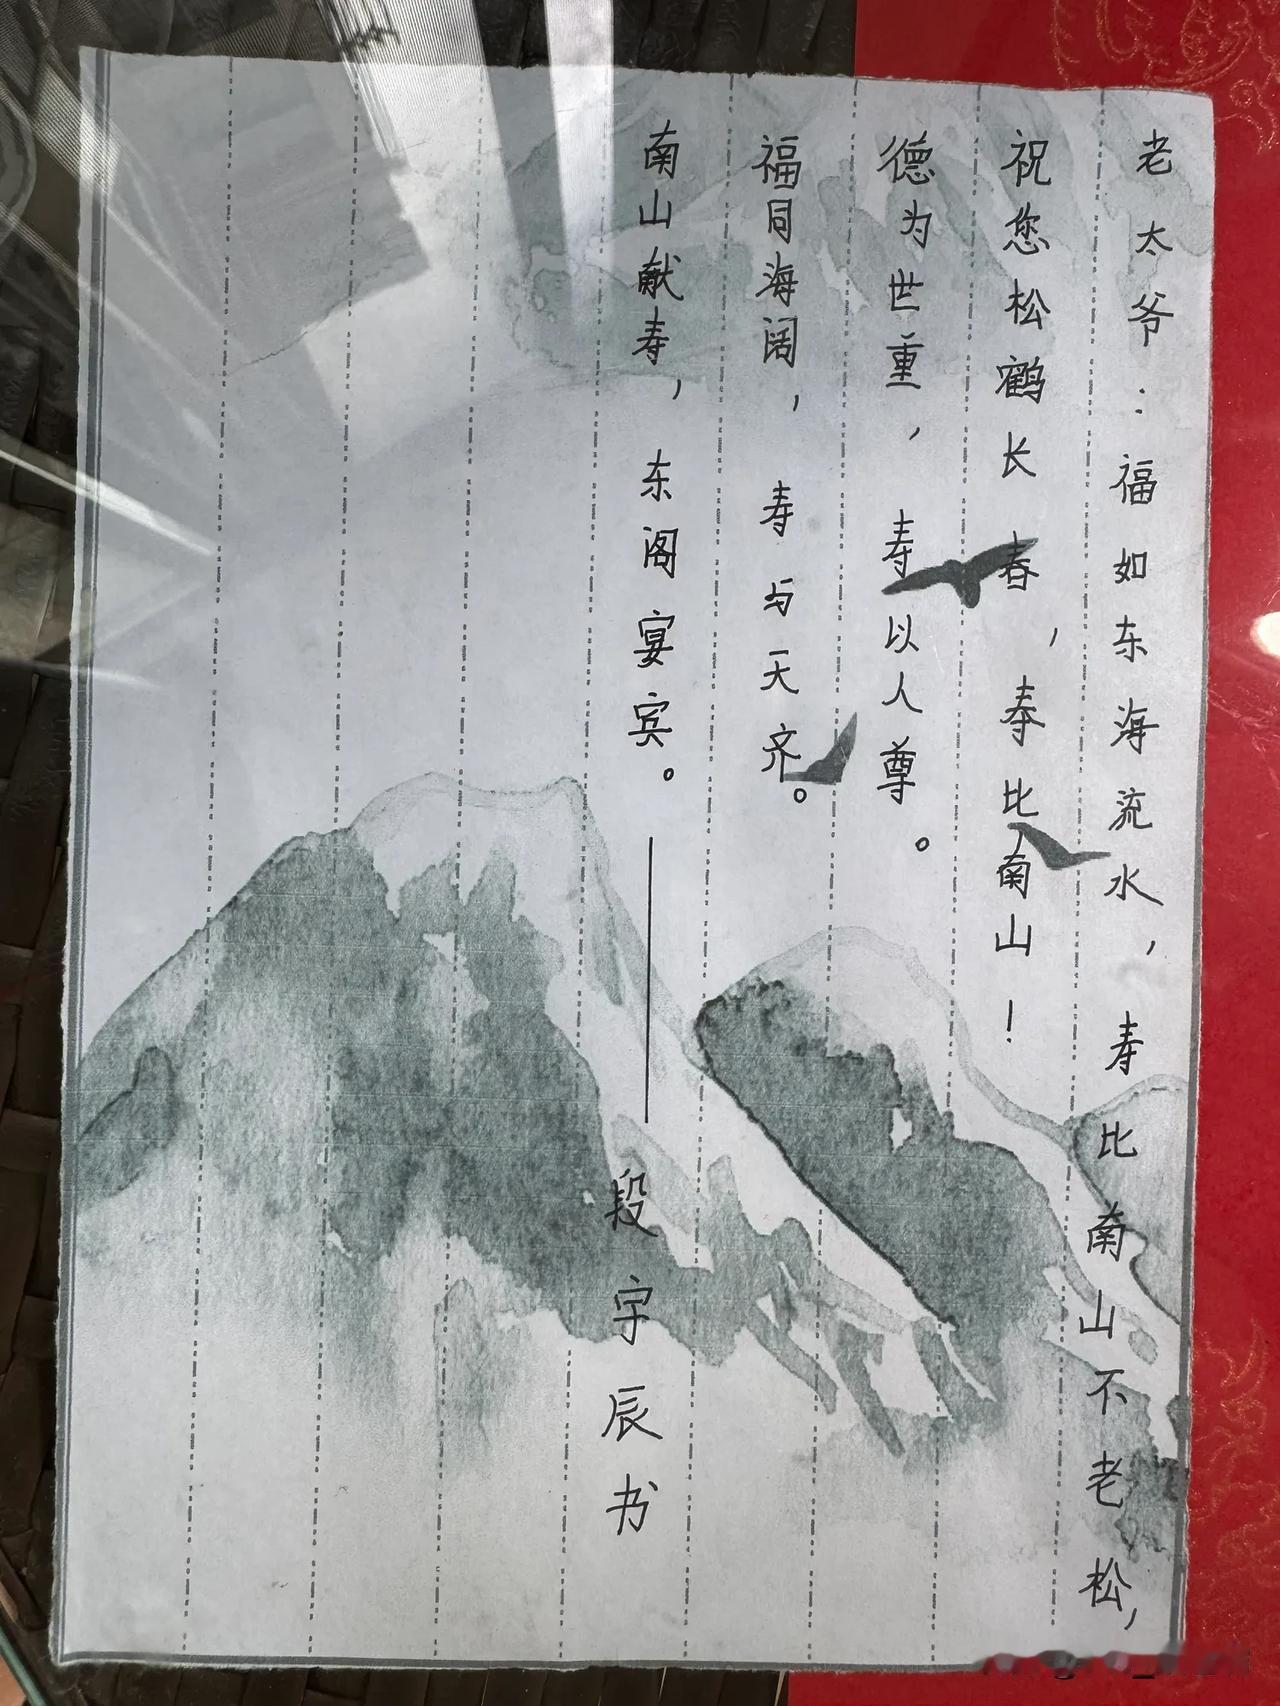 老太爷：福如东海流水，寿比南山不老松，
祝您松鹤长春，奉比南山！
德为世重，寿以人尊。
福同海阔，寿与天齐。
南山献寿，东阁宴宾。——段字辰书